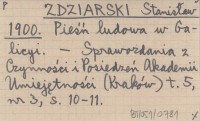 P
ZDZIARSKI Stanisław
1900. Pieśń ludowa w Ga-
licyi. — Sprawozdania z
Czynności i Posiedzeń Akademii
Umiejętności (Kraków) t. 5,
nr 3, s. 10-11.